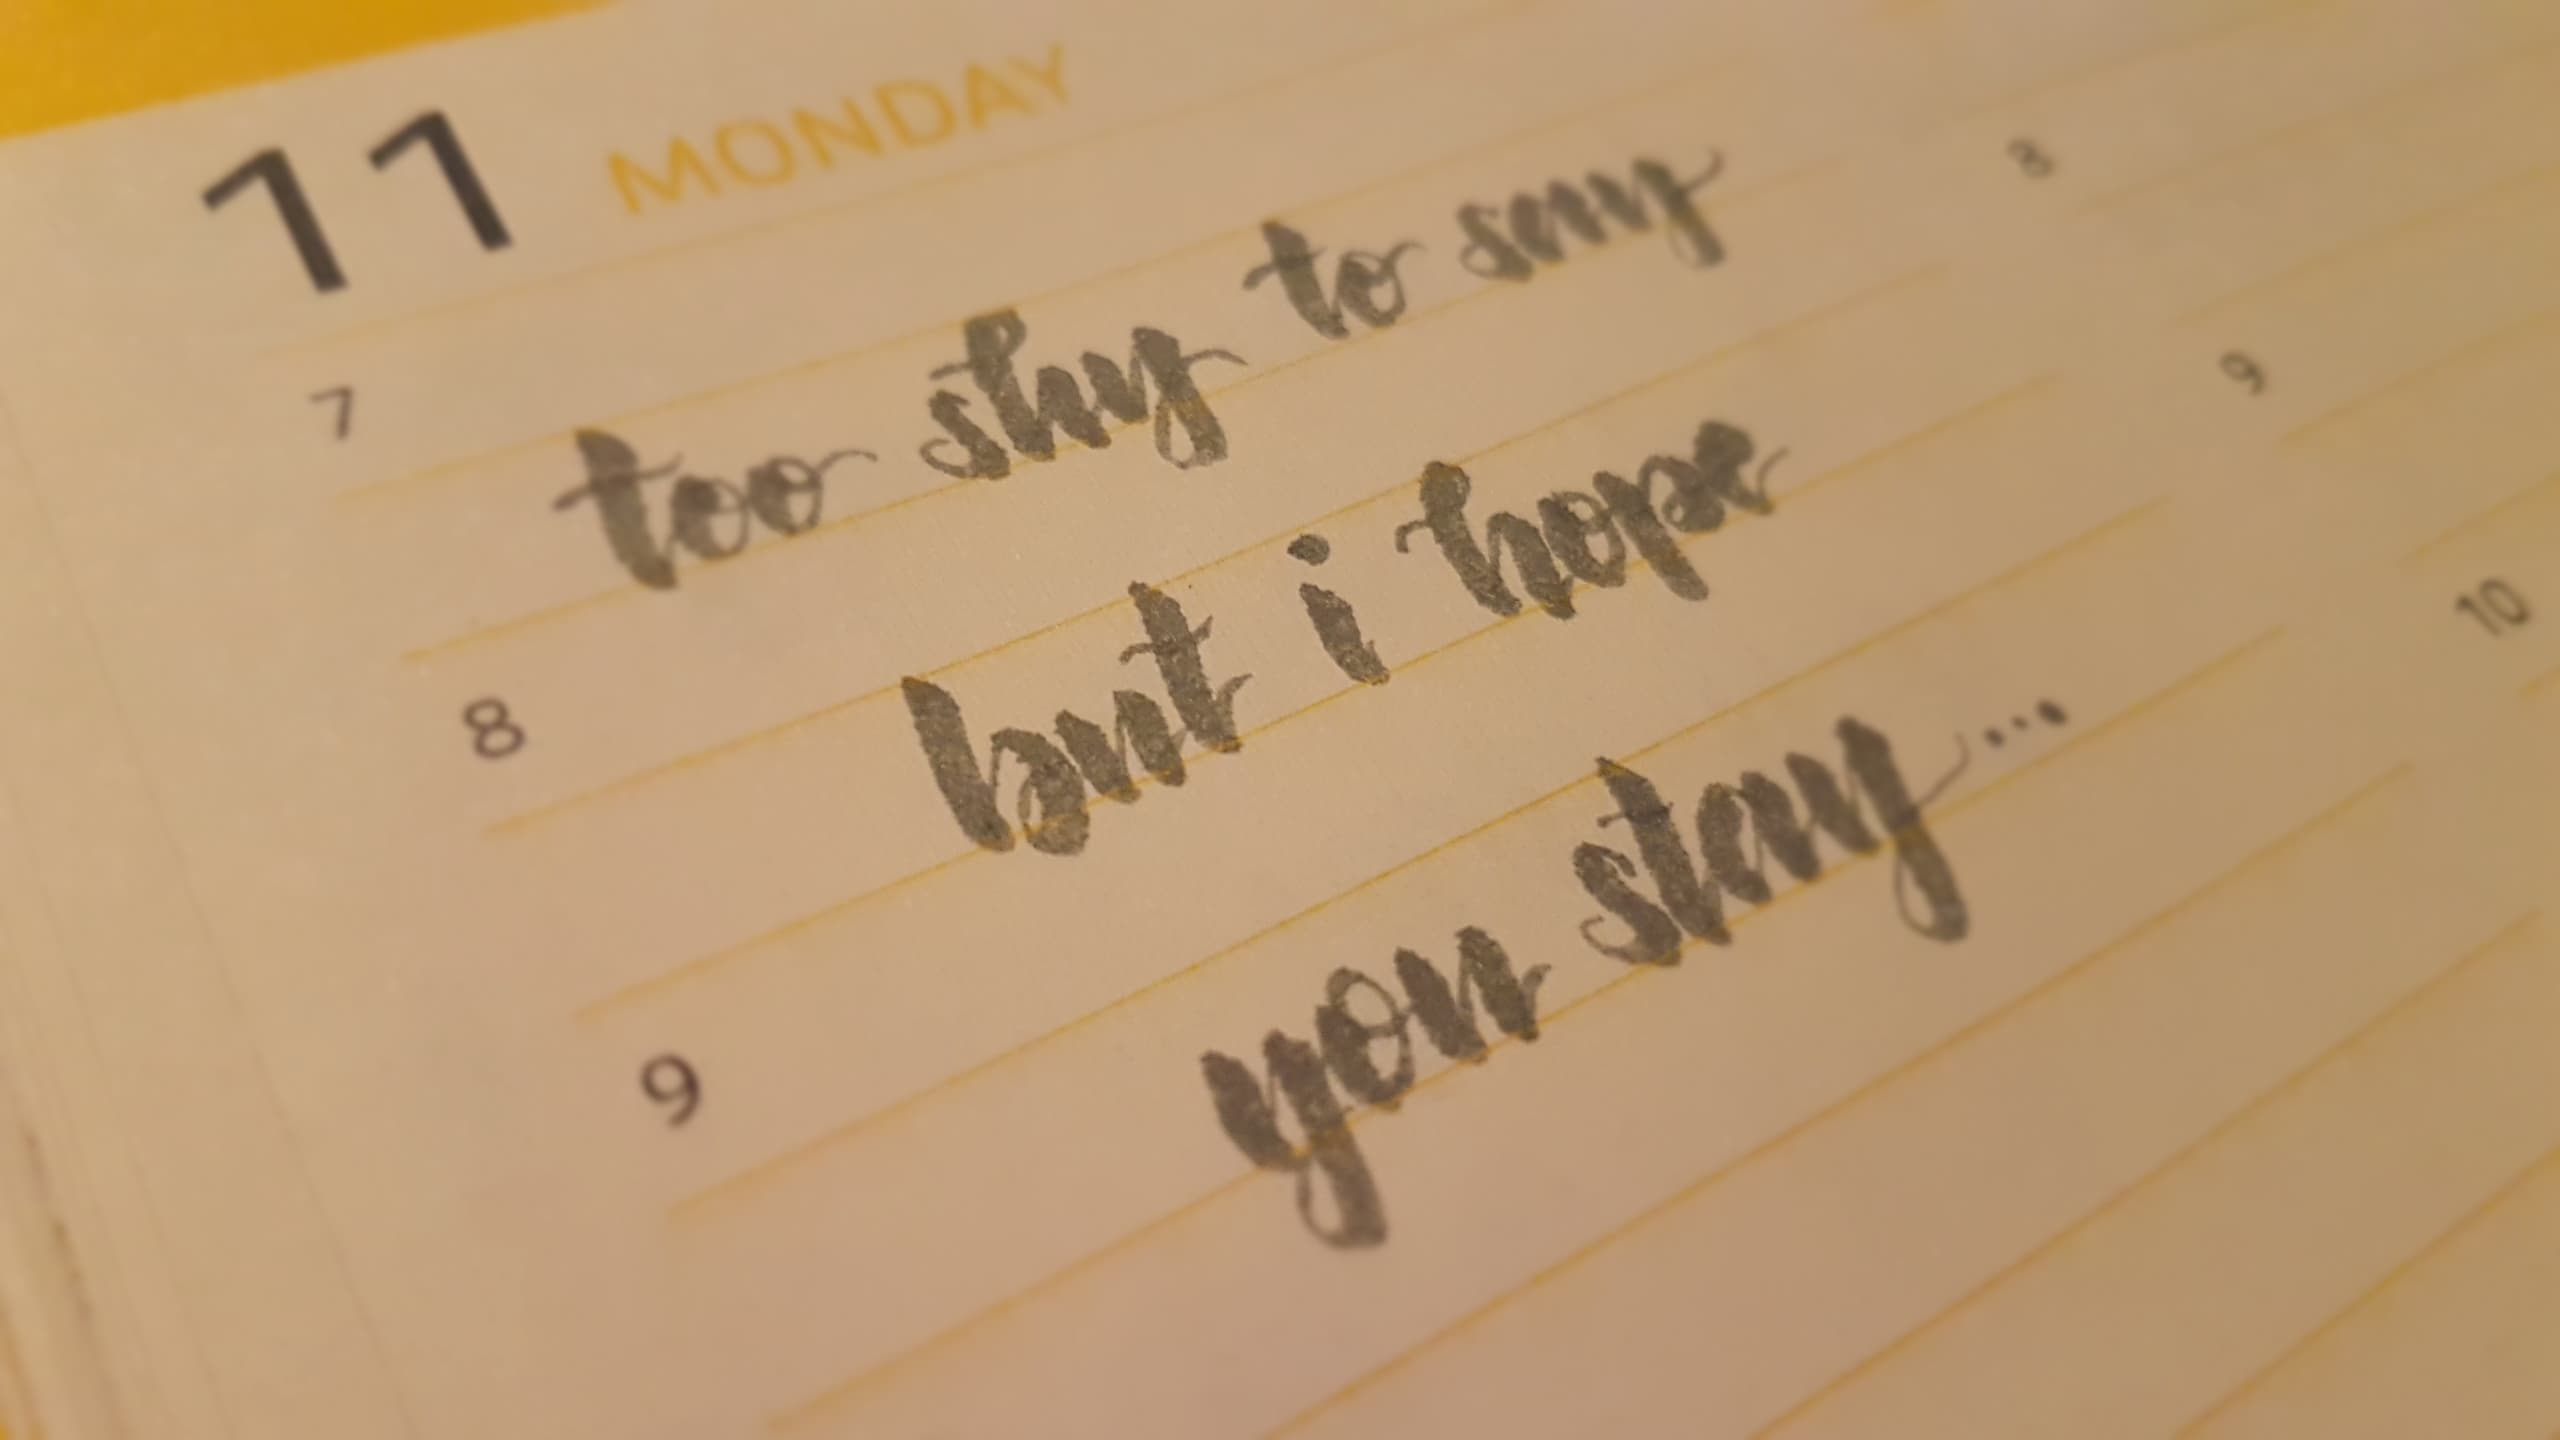 11 MONDAY
7
too shy to say
8
but i hope
9
you stay...
8
9
10